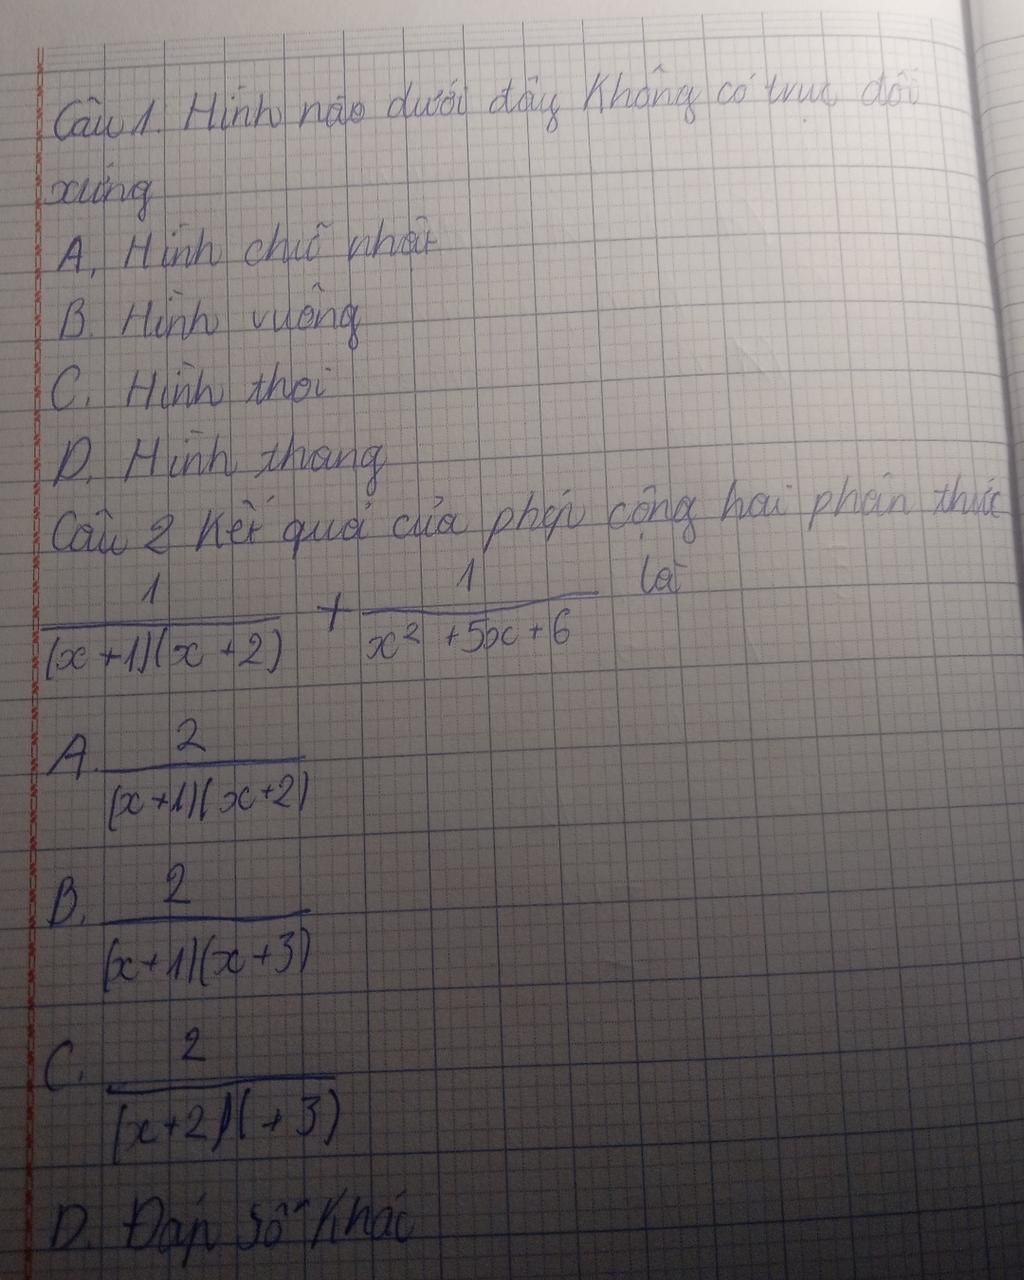 Câu 1. Hình nào dưới đây Không có trục đối
xứng
A. Hình chữ nhật
B. Hình vuông
C. Hình thoi
D. Hình thang
Câu 2 Kết quả của phép cộng hai phân thức
\frac{1}{(x+1)(x+2)} + \frac{1}{x^2+5x+6} là
A. \frac{2}{(x+1)(x+2)}
B. \frac{2}{(x+1)(x+3)}
C. \frac{2}{(x+2)(+3)}
D. Đáp số Khác